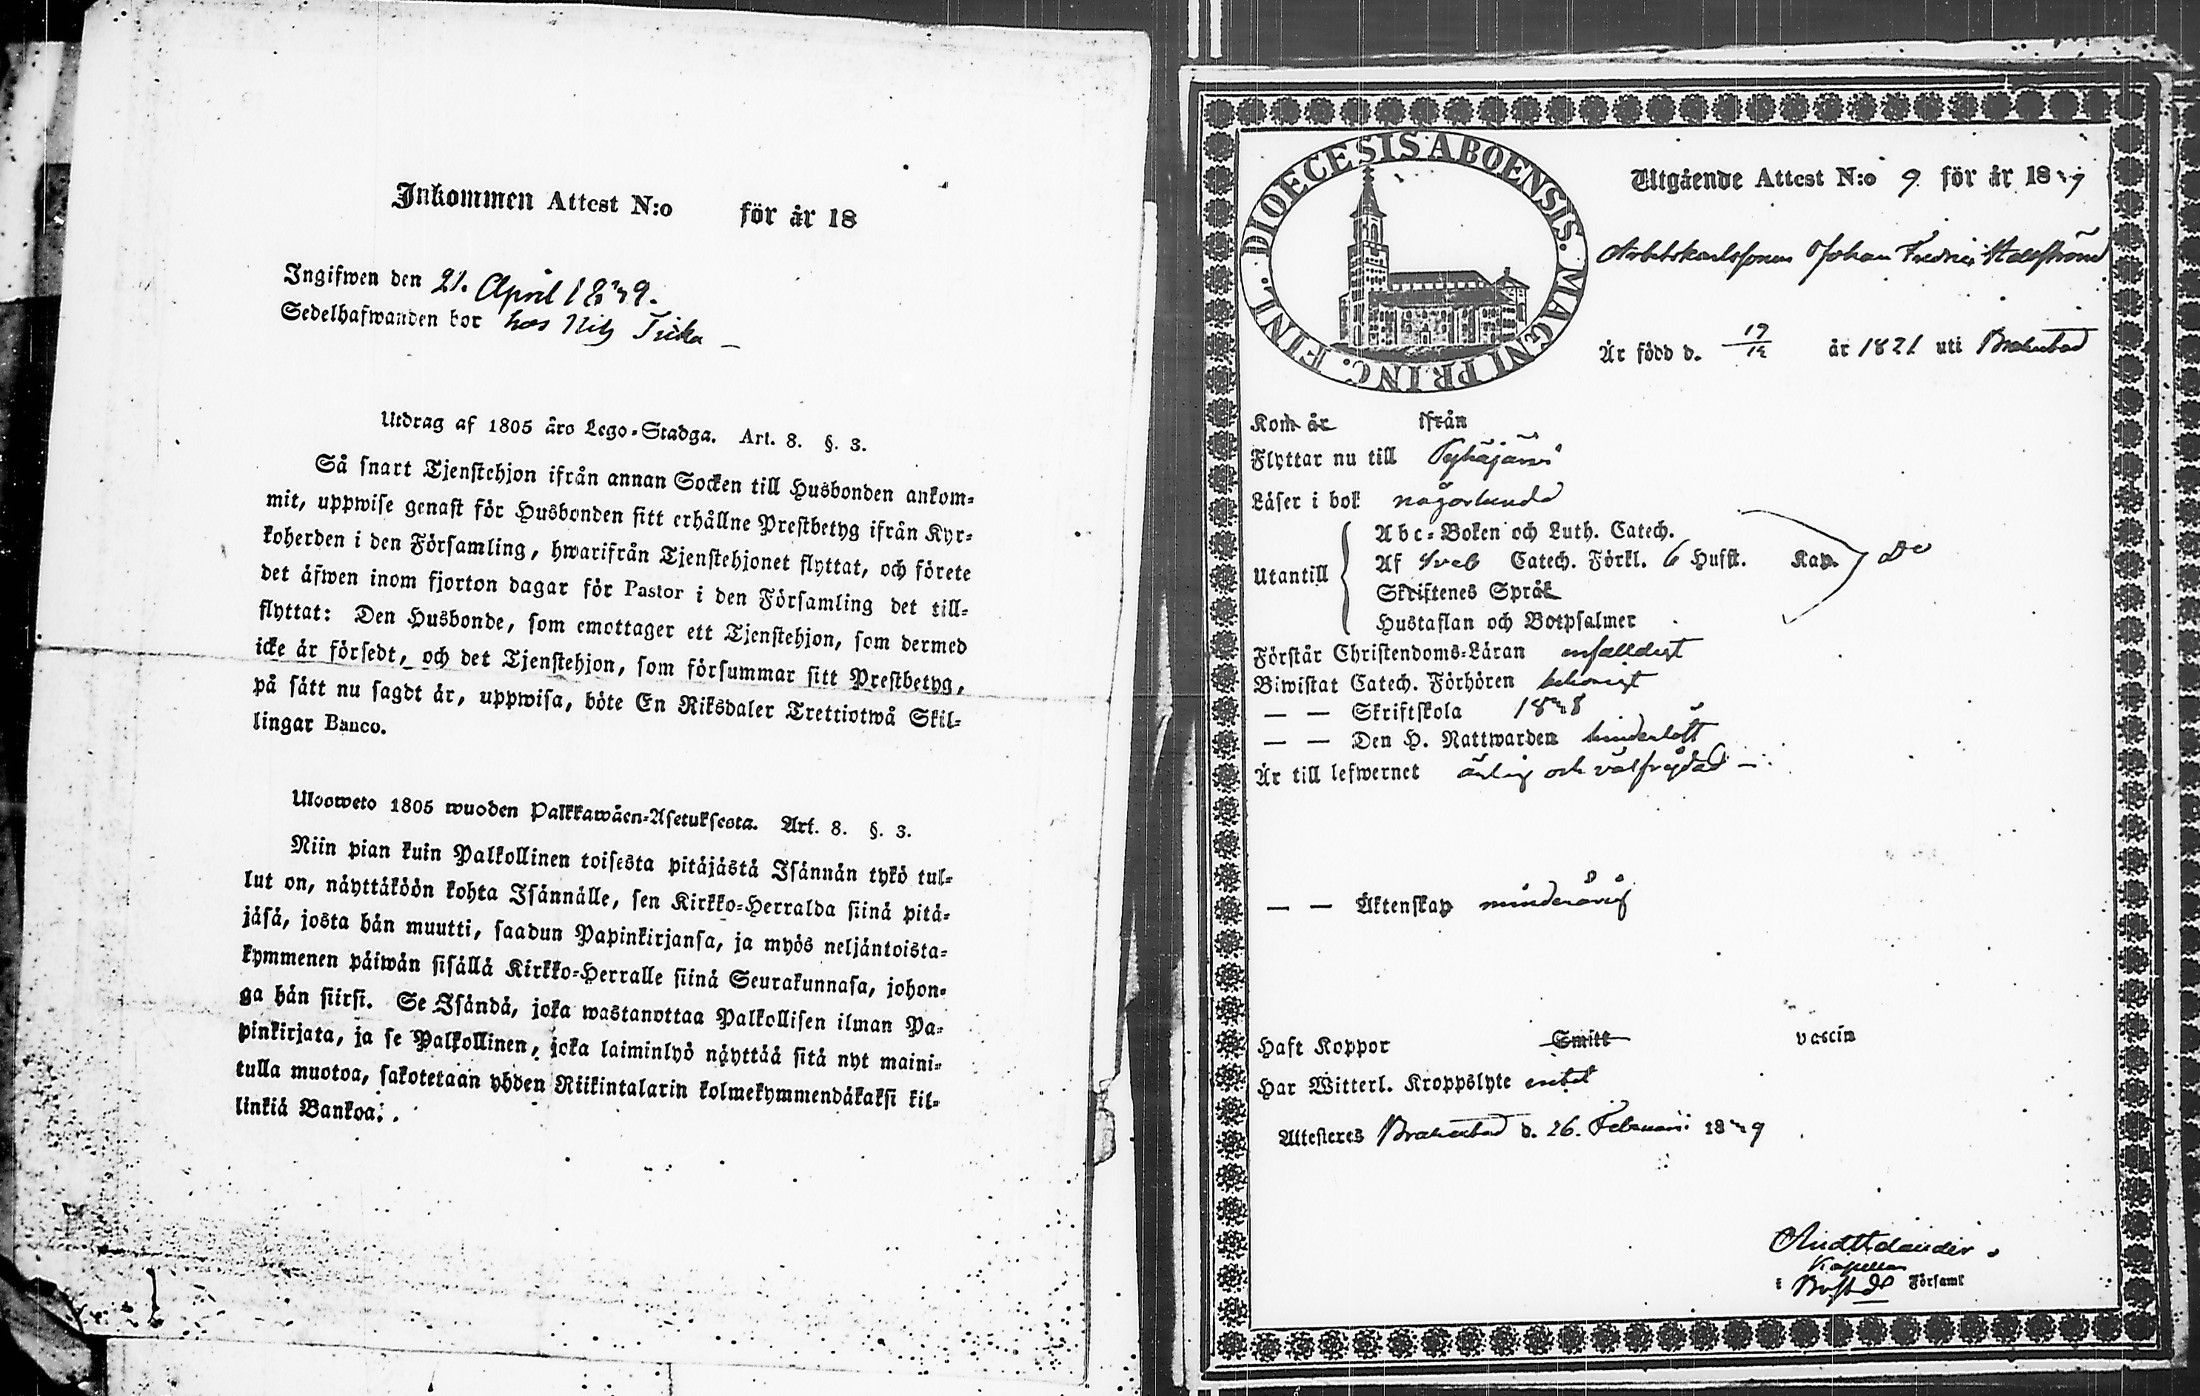 Inkommen Attest N:o för år 18
Ingifwen den 21. April 1839.
Sedelhafwanden bor hos Nils
Utdrag af 1805 års Lego-Stadga. Art. 8. §. 3.
Så snart Tjenstehjon ifrån annan Socken till Husbonden ankom-
mit, uppwise genast för Husbonden sitt erhållne Prestbetyg ifrån Kyr-
koherden i den Församling, hwarifrån Tjenstehjonet flyttat, och förete
det äfwen inom fjorton dagar för Pastor i den Församling det till-
flyttat: Den Husbonde, som emottager ett Tjenstehjon, som dermed
icke är försedt, och det Tjenstehjon, som försummar sitt Prestbetyg,
på sätt nu sagdt är, uppwisa, böte En Riksdaler Trettiotwå Skil-
lingar Banco.
Uloosweto 1805 wuoden Palkkawäen-Asetuksesta. Art. 8. §. 3.
Niin pian kuin Palkollinen toisesta pitäjästä Isännän tykö tul-
lut on, näyttäköön kohta Isännälle, sen Kirkko-Herralda siinä pitä-
jäsä, josta hän muutti, saadun Papinkirjansa, ja myös neljäntoista-
kymmenen päiwän sisällä Kirkko-Herralle siinä Seurakunnasa, johon-
ga hän siirsi. Se Isändä, joka wastanottaa Palkollisen ilman Pa-
pinkirjata, ja se Palkollinen, joka laiminlyö näyttää sitä nyt maini-
tulla muotoa, sakotetaan yhden Riikintalarin kolmekymmendäkaksi kil-
linkiä Bankoa.
DIOECESIS ABOENSIS. MAGNI PRINC. FINL.
Utgående Attest N:o 9 för år 1839
Arbetskarlssonen Johan Fredric
Är född d. 19/12 år 1821 uti Brahestad
Kom år ifrån
Flyttar nu till Pyhäjärvi
Läser i bok någorlunda
Utantill
Abc-Boken och Luth. Catech.
Af Sveb Catech. Förkl. 6 Hufst. Kap. Do
Skriftenes Språk
Hustaflan och Botpsalmer
Förstår Christendoms-Läran enfalldigt
Biwistat Catech. Förhören behörigt
— — Skriftskola 1838
— — Den H. Nattwarden hinderlöst
Är till lefwernet ärlig och välfrejdad
— — Äktenskap minderårig
Haft Koppor Smitt vaccin
Har Witterl. Kroppslyte intet
Attesteres Brahestad d. 26. Februari 1839
Kapellan
i Brhstd Församl